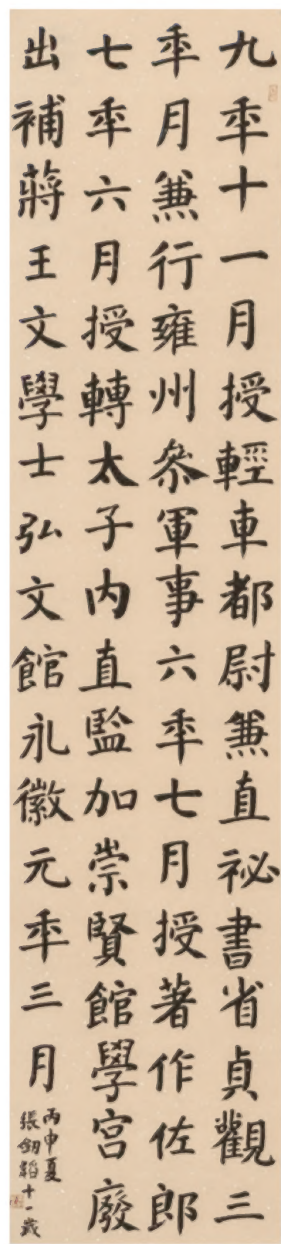 九年十一月授輕車都尉兼直祕書省貞觀三
年月兼行雍州參軍事六年七月授著作佐郎
七年六月授轉太子内直監加崇賢館學宮廢
出補蔣王文學士弘文館永徽元年三月
丙申夏
張劒韜十一歲